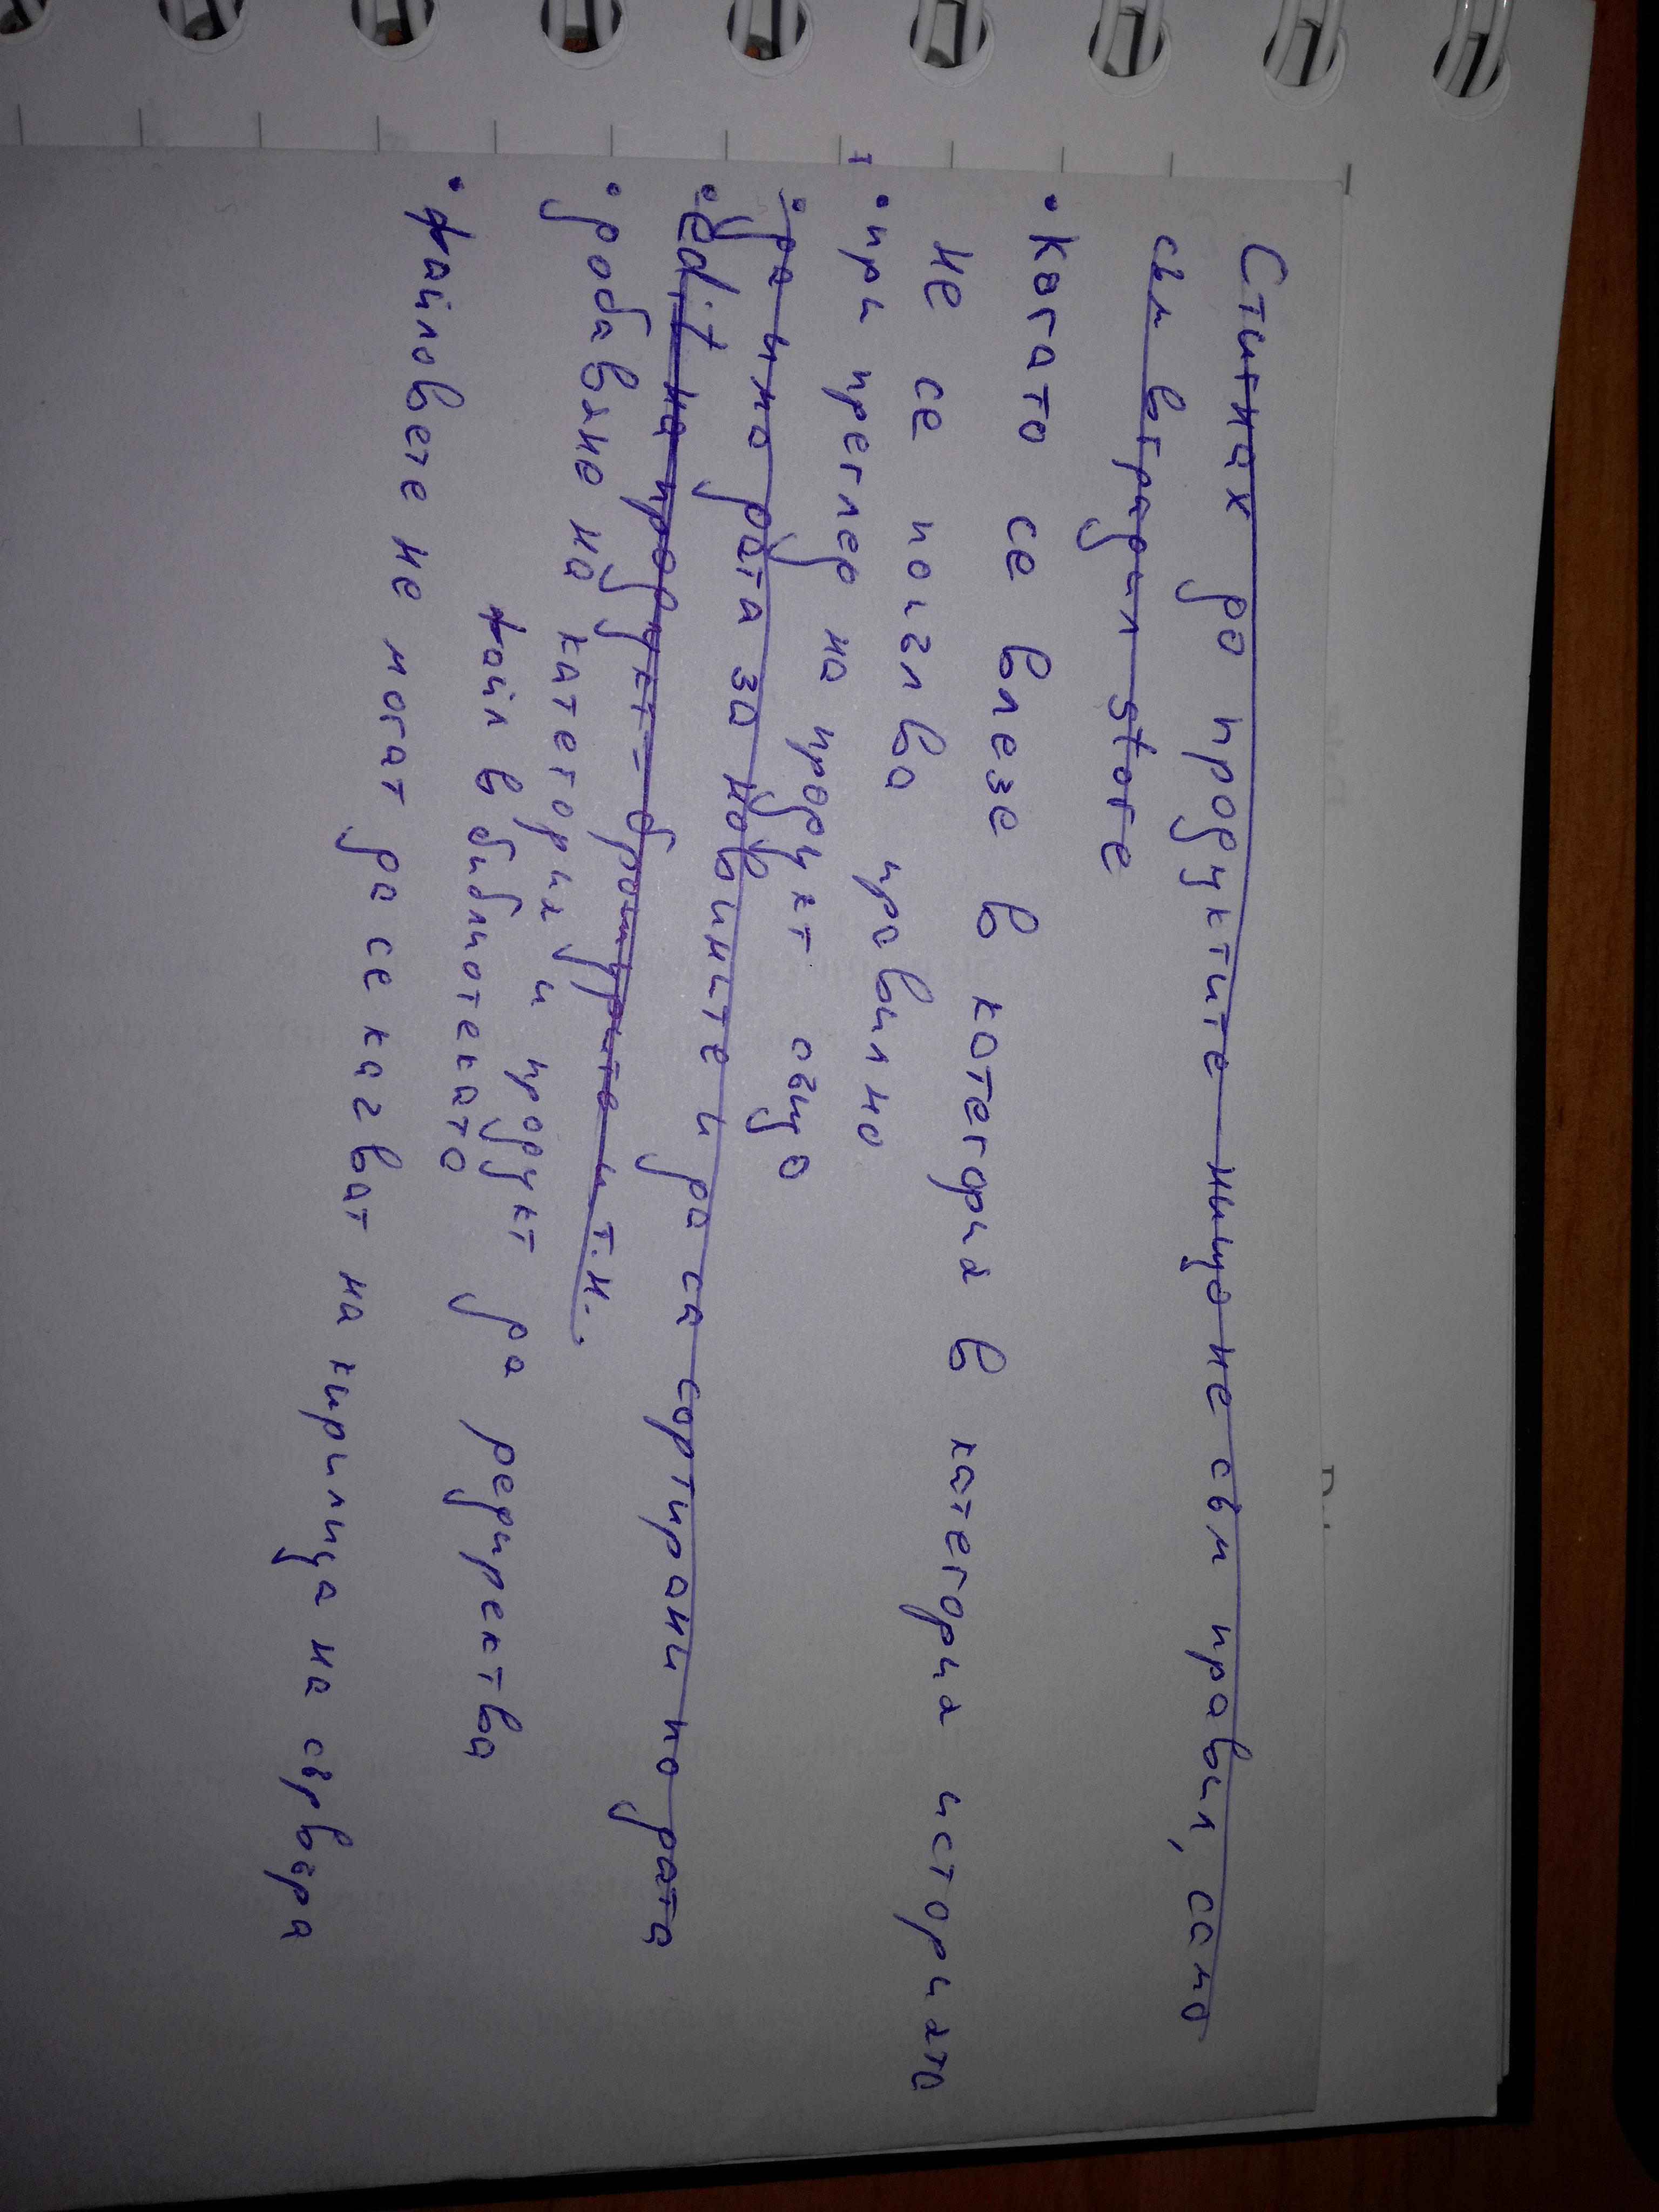 Стигнах до продуктите нищо не съм правил, само
съм вградил store
• Когато се влезе в категория в категория историята
не се попълва правилно
• при преглед на продукт също
• да има дата за новините и да са сортирани по дата
• edit на продукт - брошурите и т.н..
• добавяне на категория и продукт да редиректва
файл в библиотеката
• файловете не могат да се качват на кирилица на сървъра